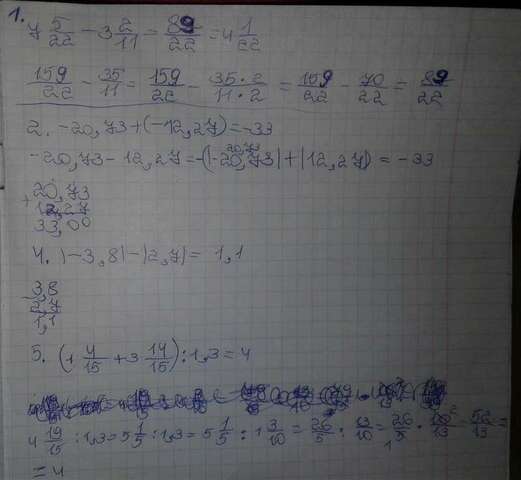 1.
7 5/22 - 3 2/11 = 89/22 = 4 1/22
159/22 - 35/11 = 159/22 - 35·2/11·2 = 159/22 - 70/22 = 89/22
2. -20,73+(-12,27)=-33
-20,73-12,27=-(|-20,73|+|12,27|)=-33
+20,73
12,27
33,00
4. |-3,8|-|2,7|= 1,1
-3,8
2,7
1,1
5. (1 4/15 + 3 14/15):1,3=4
4 19/15 :1,3=5 1/5 :1,3=5 1/5 : 1 3/10 = 26/5 : 13/10 = 26/5 · 10/13 = 52/13 =
= 4